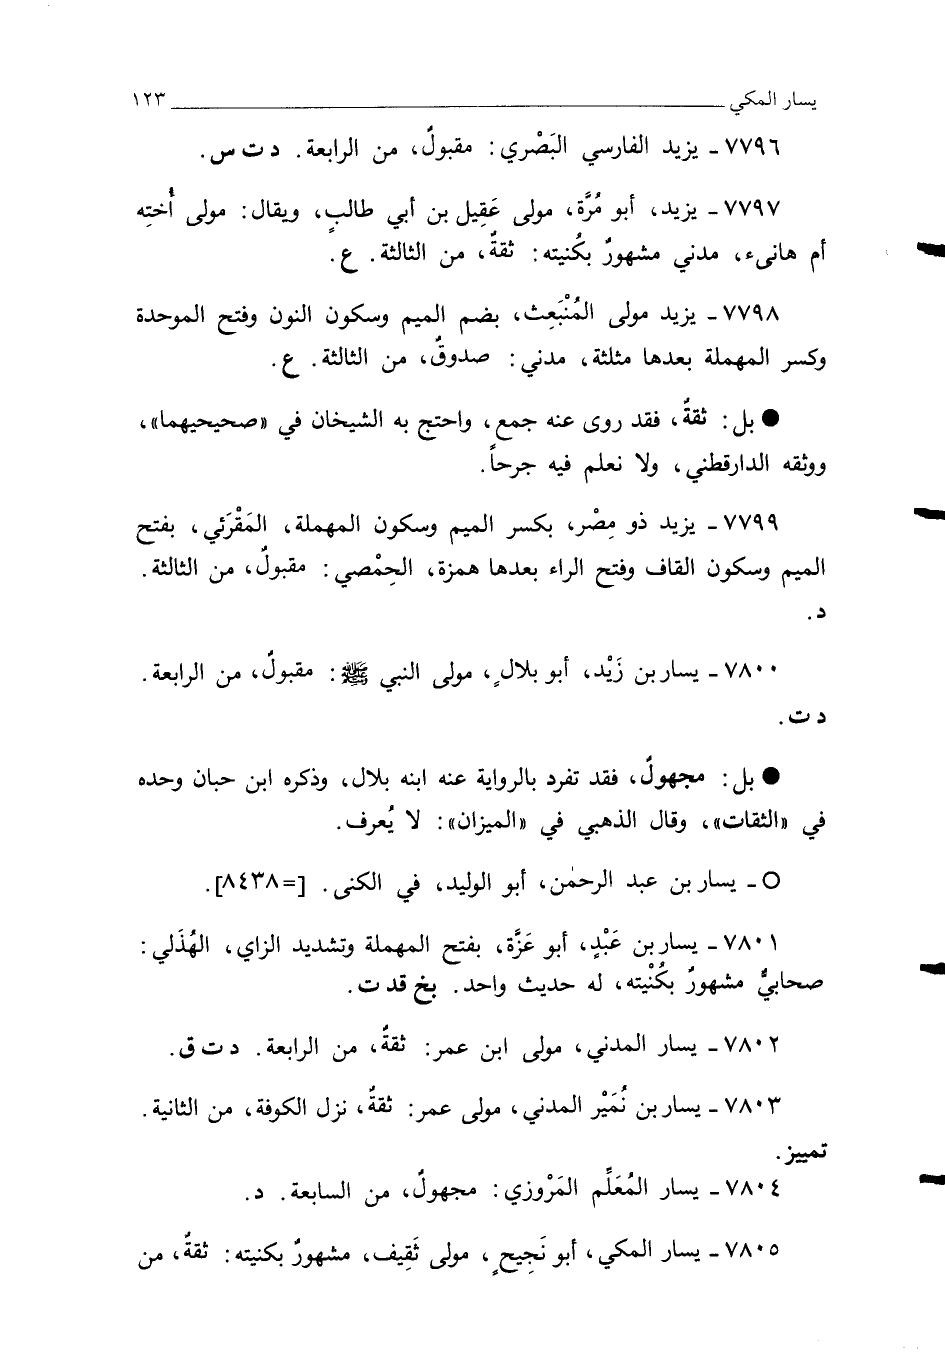 يسار المكي ١٢٣
٧٧٩٦ ـ يزيد الفارسي البَصْري: مقبولٌ، من الرابعة. د ت س.
٧٧٩٧ ـ يزيد، أبو مُرَّة، مولى عَقِيل بن أبي طالبٍ، ويقال: مولى أُختِه
أم هانىء، مدني مشهورٌ بكُنيته: ثقةٌ، من الثالثة. ع.
٧٧٩٨ ـ يزيد مولى المُنْبَعِث، بضم الميم وسكون النون وفتح الموحدة
وكسر المهملة بعدها مثلثة، مدني: صدوقٌ، من الثالثة. ع.
● بل: ثقةٌ، فقد روى عنه جمع، واحتج به الشيخان في «صحيحيهما»،
ووثقه الدارقطني، ولا نعلم فيه جرحاً.
٧٧٩٩ ـ يزيد ذو مِصْر، بكسر الميم وسكون المهملة، المَقْرَئي، بفتح
الميم وسكون القاف وفتح الراء بعدها همزة، الحِمْصي: مقبولٌ، من الثالثة.
د.
٧٨٠٠ ـ يسار بن زَيْد، أبو بلالٍ، مولى النبي ﷺ: مقبولٌ، من الرابعة.
د ت.
● بل: مجهولٌ، فقد تفرد بالرواية عنه ابنه بلال، وذكره ابن حبان وحده
في «الثقات»، وقال الذهبي في «الميزان»: لا يُعرف.
○ ـ يسار بن عبد الرحمٰن، أبو الوليد، في الكنى. [=٨٤٣٨].
٧٨٠١ ـ يسار بن عَبْدٍ، أبو عَزَّة، بفتح المهملة وتشديد الزاي، الهُذَلي:
صحابيٌّ مشهورٌ بكُنْيته، له حديث واحد. بخ قد ت.
٧٨٠٢ ـ يسار المدني، مولى ابن عمر: ثقةٌ، من الرابعة. د ت ق.
٧٨٠٣ ـ يسار بن نُمَيْر المدني، مولى عمر: ثقةٌ، نزل الكوفة، من الثانية.
تمييز.
٧٨٠٤ ـ يسار المُعَلِّم المَرْوزي: مجهولٌ، من السابعة. د.
٧٨٠٥ ـ يسار المكي، أبو نَجِيحٍ، مولى ثَقِيف، مشهورٌ بكنيته: ثقةٌ، من